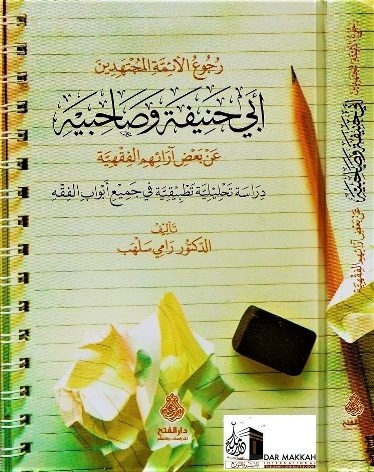 رجوع الأئمة المجتهدين
أبي حنيفة وصاحبيه
عن بعض آرائهم الفقهية
دراسة تحليلية تطبيقية في جميع أبواب الفقه
تأليف
الدكتور رامي سلهب
دار الفتح
DAR MAKKAH
INTERNATIONAL
رجوع الأئمة المجتهدين
أبي حنيفة وصاحبيه
عن بعض آرائهم الفقهية